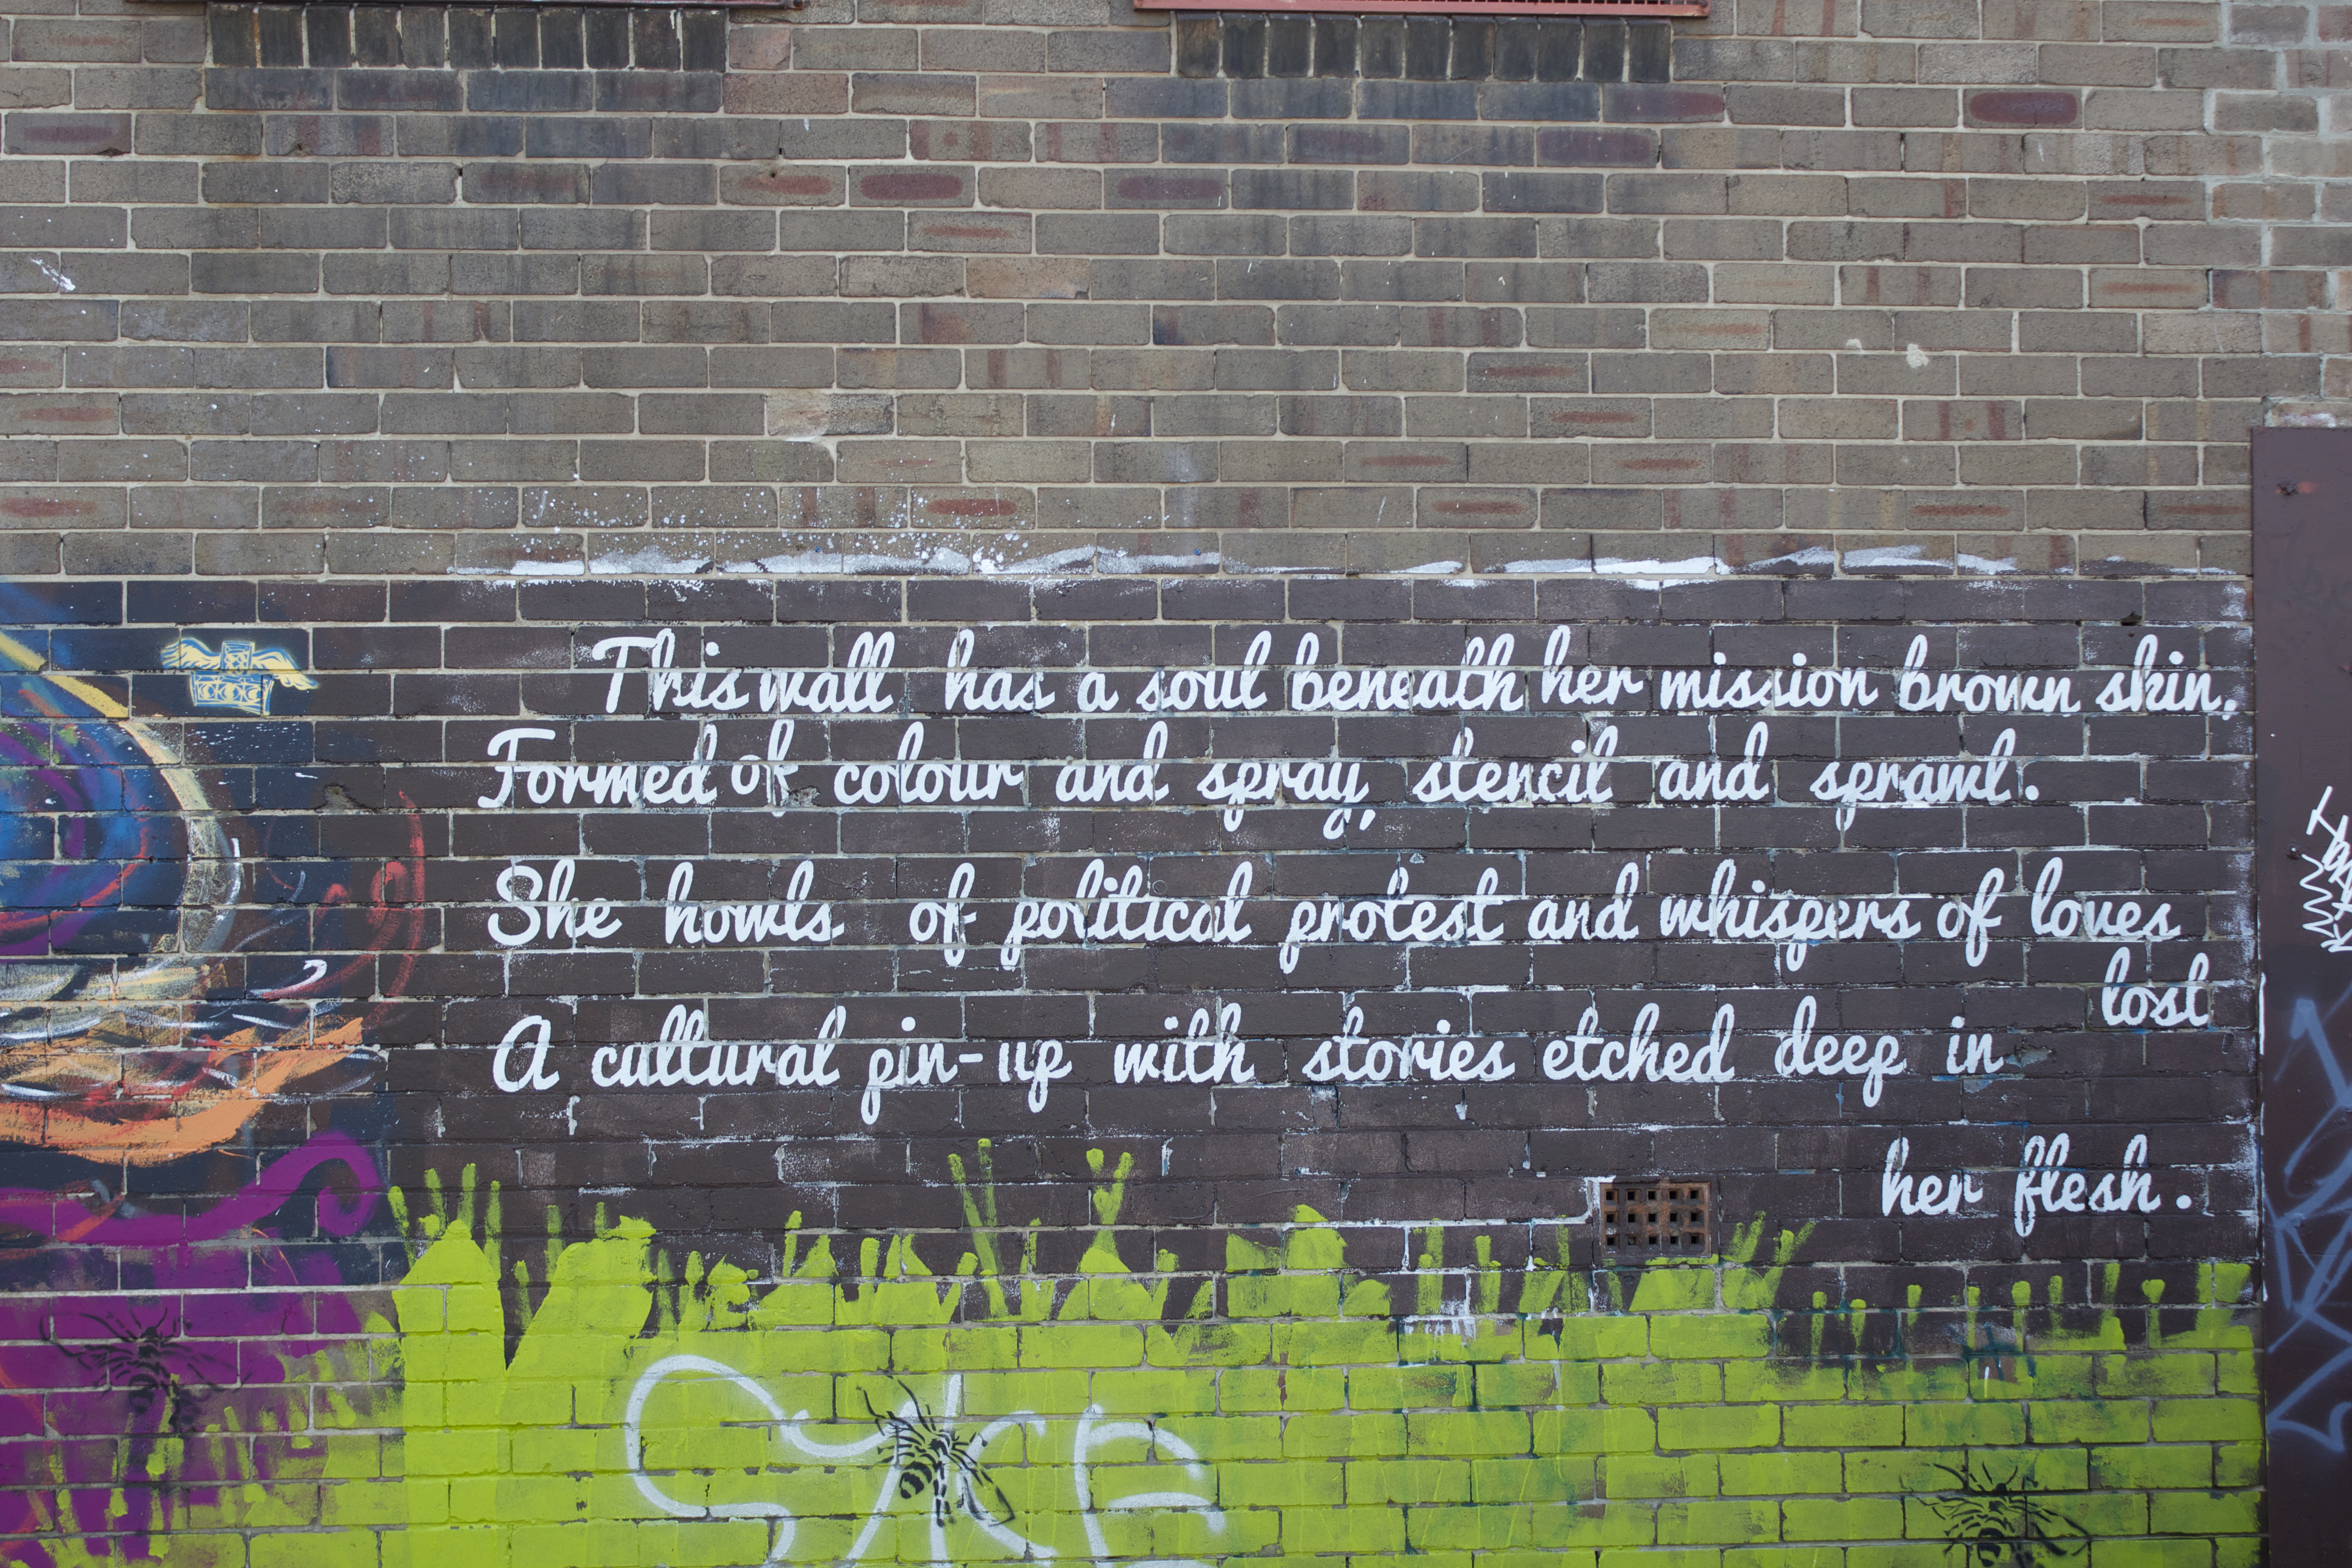 This wall has a soul beneath her mission brown skin.
Formed of colour and spray, stencil and sprawl.
She howls of political protest and whispers of loves
lost
A cultural pin-up with stories etched deep in
her flesh.